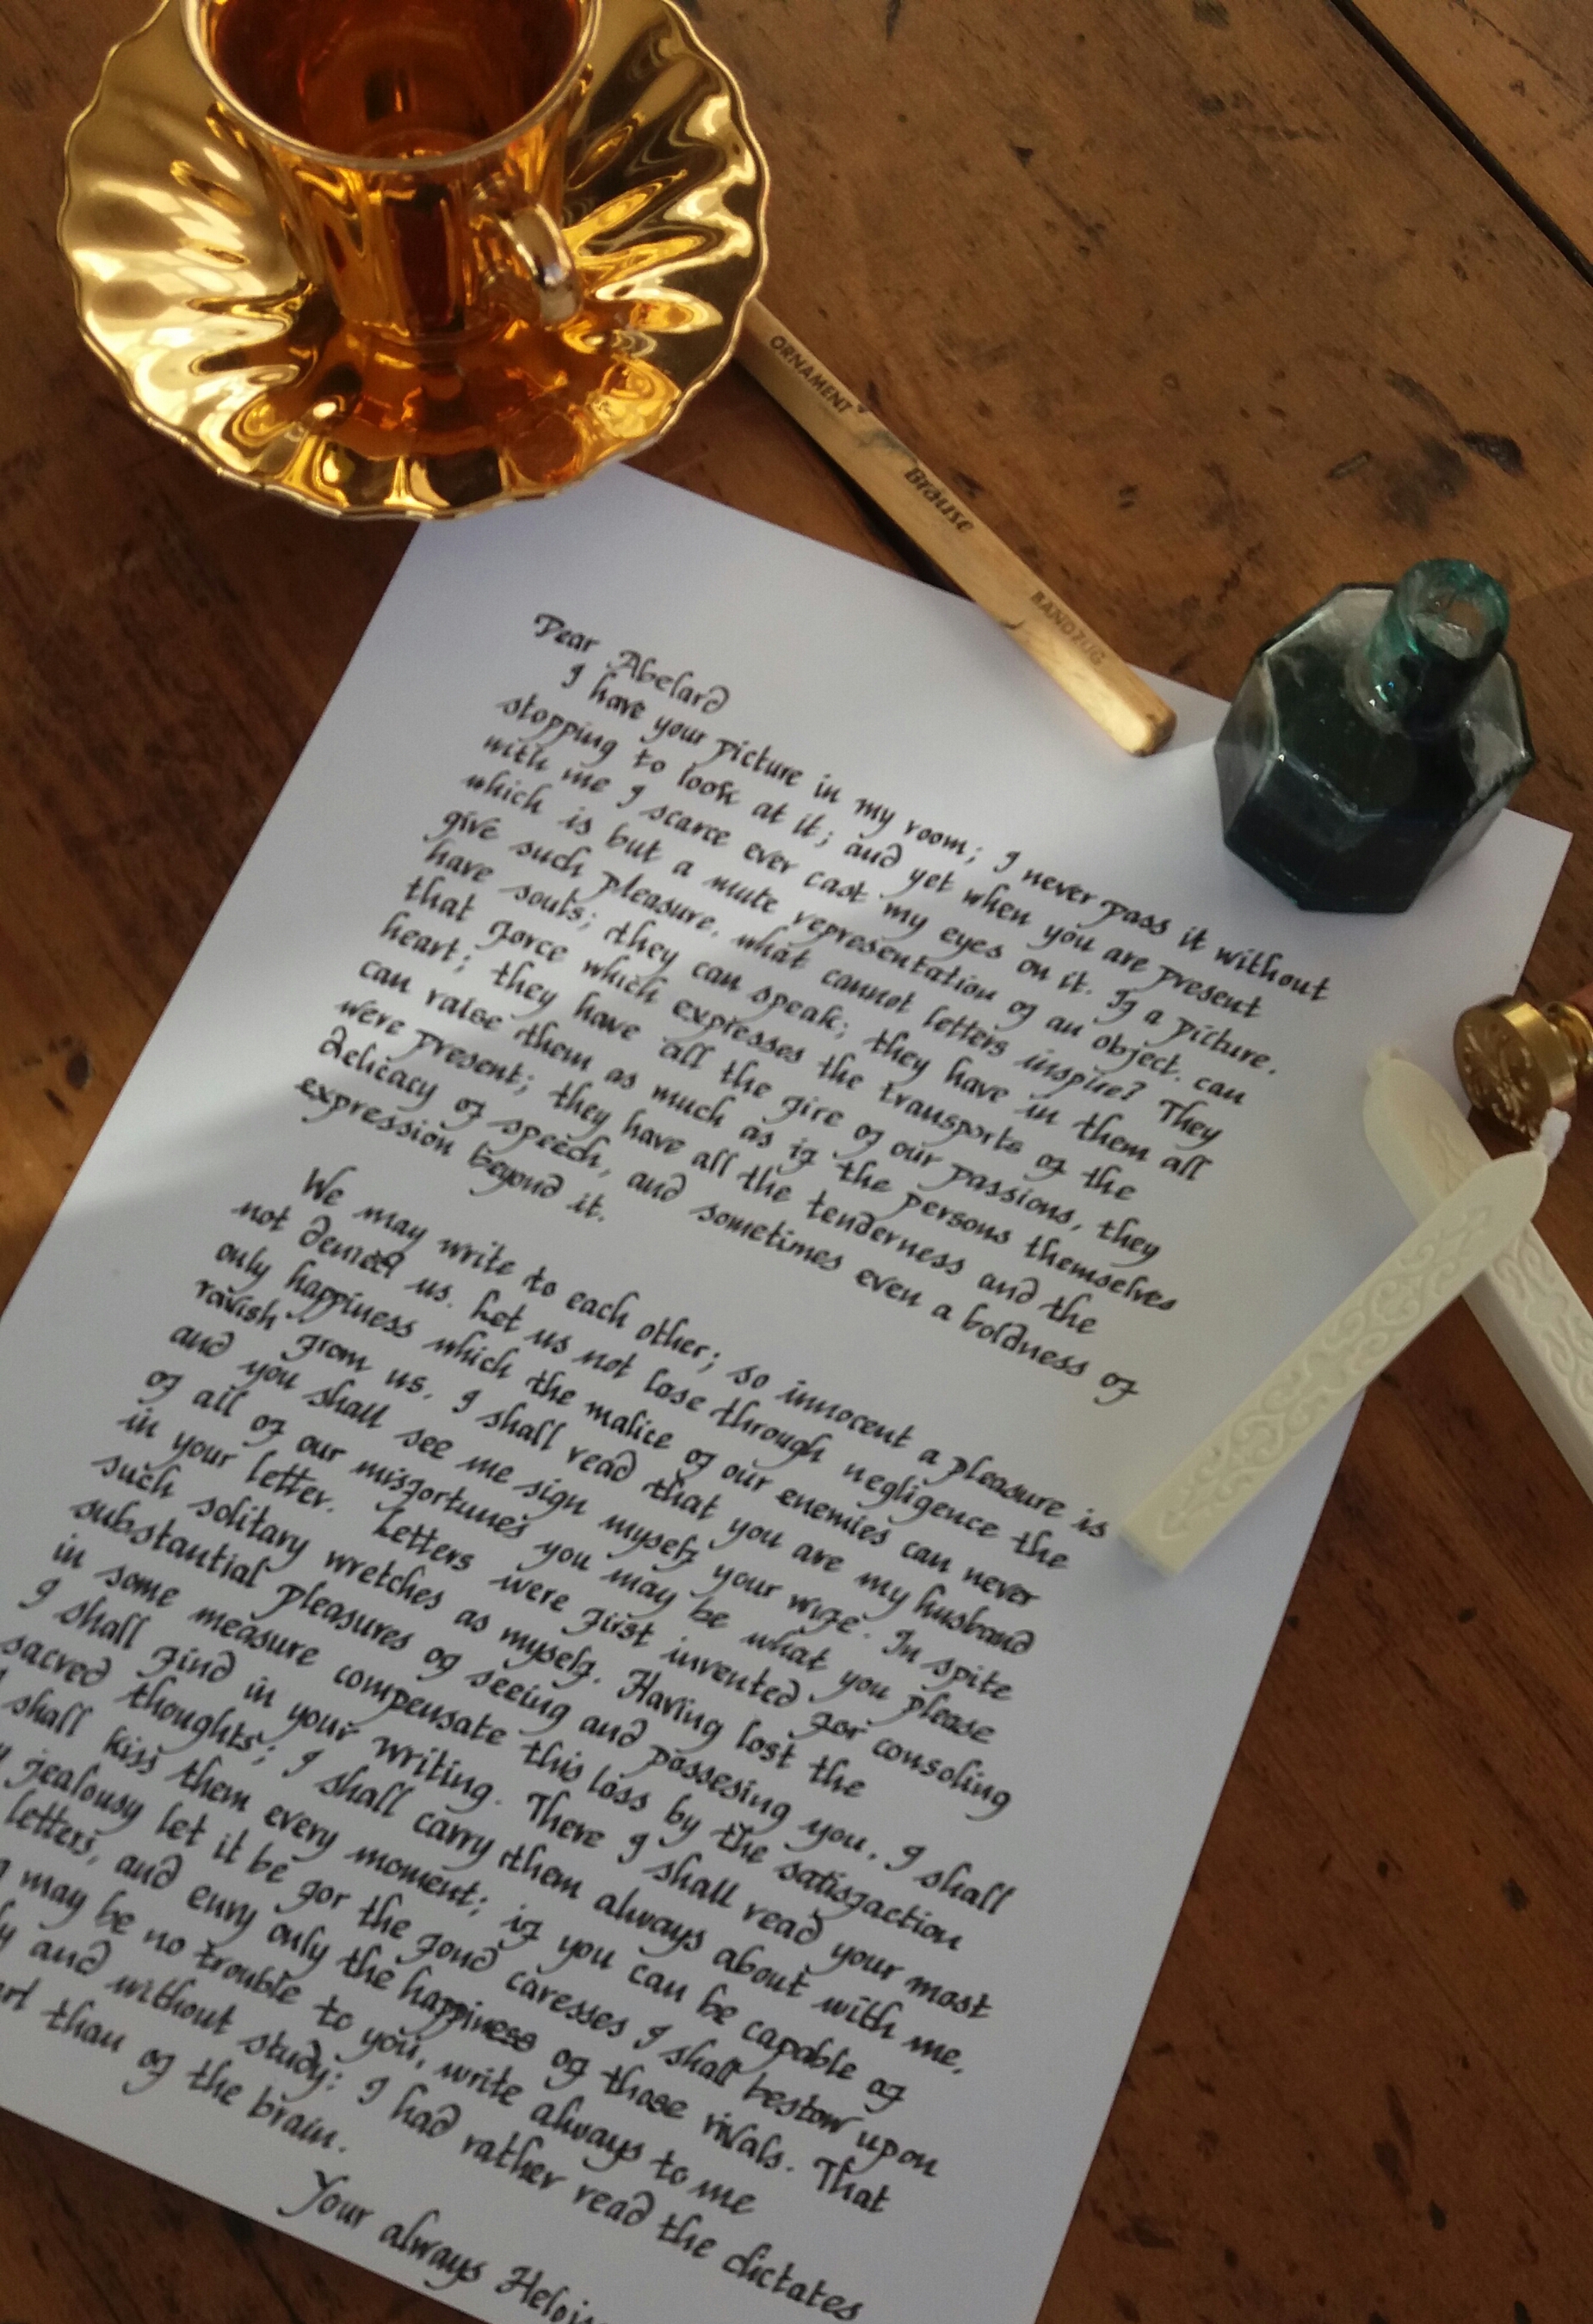 ORNAMENT
Brause
BANDZUG
Dear Abelard
I have your picture in my room; I never pass it without
stopping to look at it; and yet when you are present
with me I scarce ever cast my eyes on it. If a picture.
which is but a mute representation of an object. can
give such pleasure. what cannot letters inspire? They
have souls; they can speak; they have in them all
that force which expresses the transports of the
heart; they have all the fire of our passions, they
can raise them as much as if the persons themselves
were present; they have all the tenderness and the
delicacy of speech, and sometimes even a boldness of
expression beyond it.
We may write to each other; so innocent a pleasure is
not denied us. Let us not lose through negligence the
only happiness which the malice of our enemies can never
ravish from us. I shall read that you are my husband
and you shall see me sign myself your wife. In spite
of all of our misfortunes you may be what you please
in your letter. Letters were first invented for consoling
such solitary wretches as myself. Having lost the
substantial pleasures of seeing and possesing you, I shall
in some measure compensate this loss by the satisfaction
I shall find in your writing. There I shall read your most
sacred thoughts; I shall carry them always about with me,
shall kiss them every moment; if you can be capable of
jealousy let it be for the fond caresses I shall bestow upon
letters, and envy only the happiness of those rivals. That
may be no trouble to you, write always to me
and without study: I had rather read the dictates
than of the brain.
Your always Helois